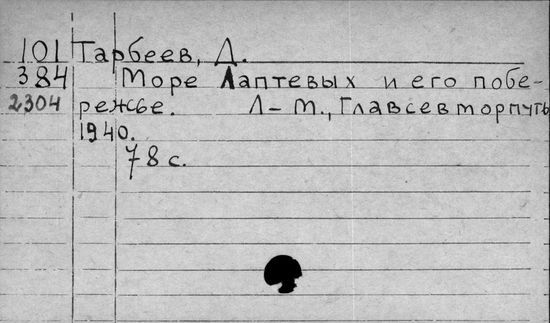 101 Тарбеев, Д.
384 Море Лаптевых и его побе-
2304 режье. Л-М., Главсевморпуть
1940.
78 с.